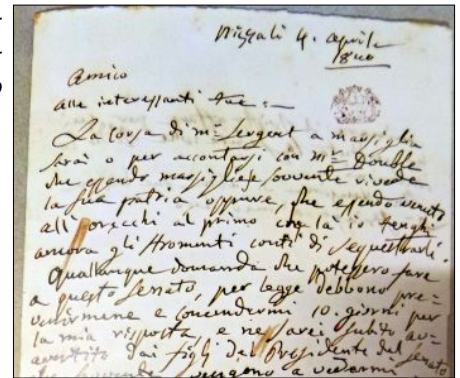 Nizza li 4. aprile
1840
Amico
alle interessanti tue :=
La corsa di mr Sergent a marsiglia
sarà o per accontarsi con mr Double
che essendo marsigliese sovente rivede
la sua patria oppure, che essendo venuto
all'orecchi al primo che là io tenghi
ancora gli stromenti conti di sequestrarli.
Quallunque domanda che potessero fare
a questo senato, per legge debbono pre=
venirmene e concedermi 10. giorni per
la mia risposta e ne sarei subito av=
avvertito dai figli del Presidente del senato
che sovente vengono a vedermi